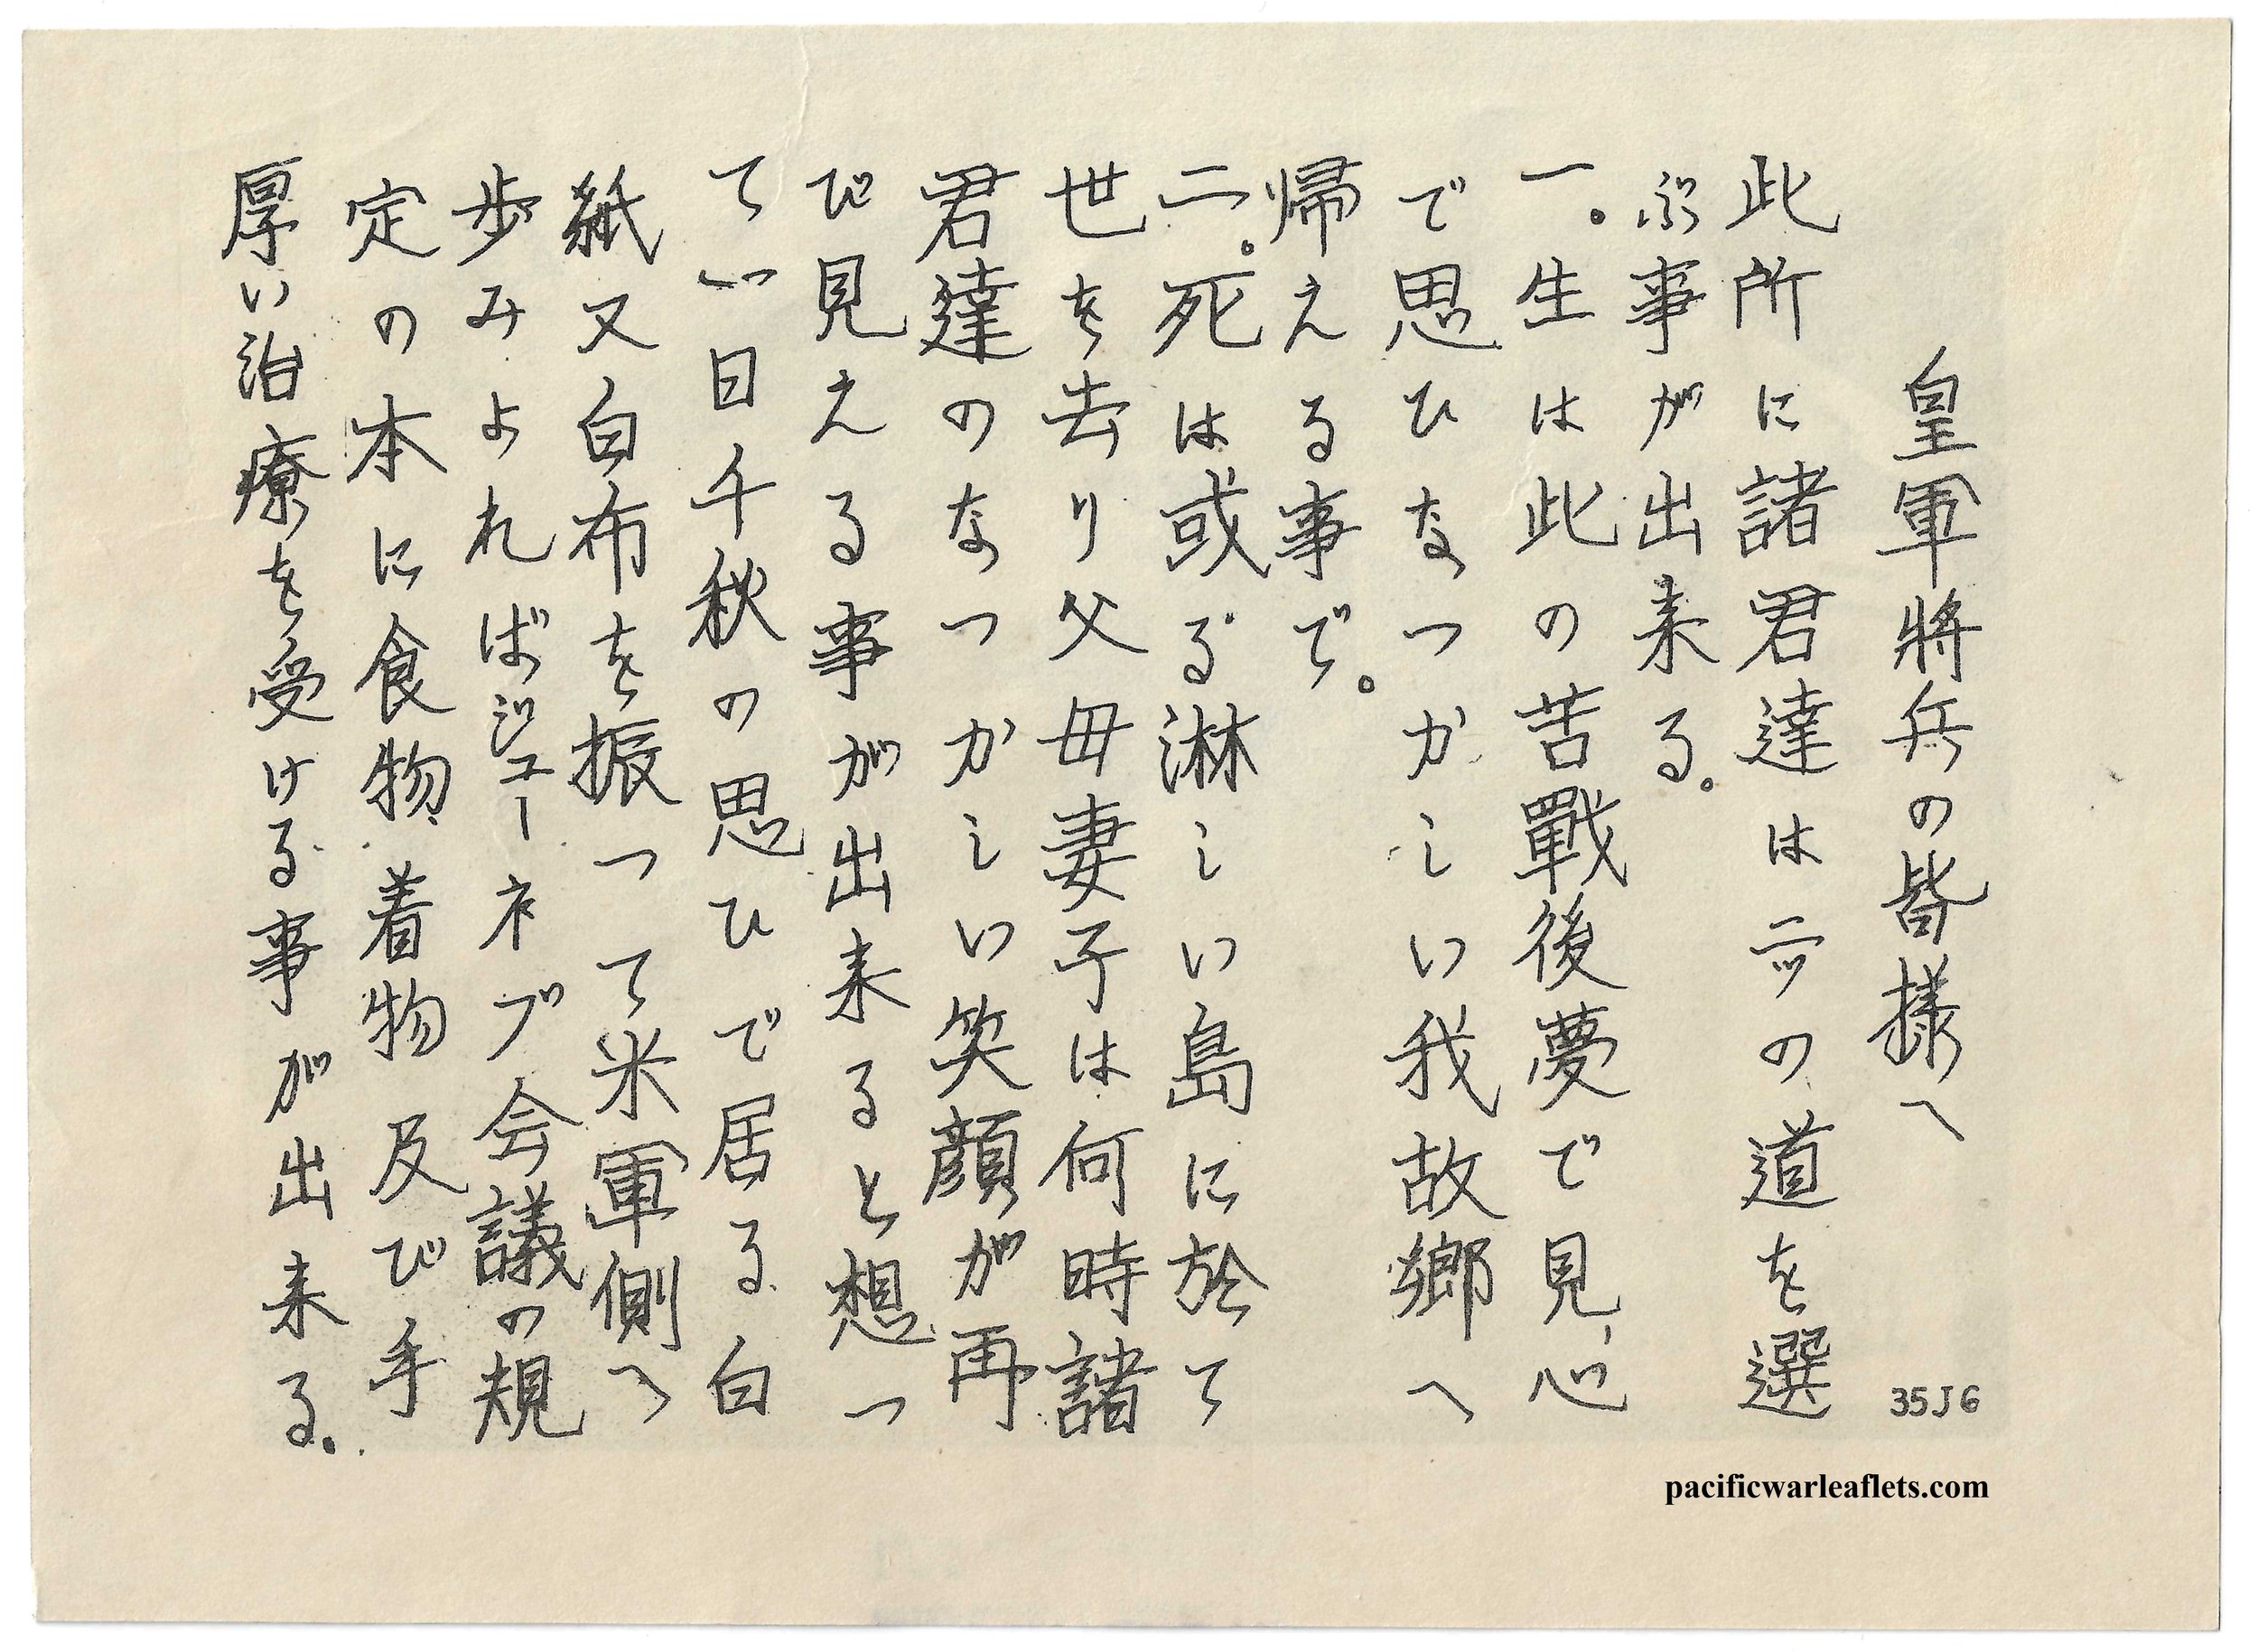 皇軍將兵の皆様へ
此所に諸君達は二ツの道を選
ぶ事が出来る。
一。生は此の苦戰後夢で見、心
で思ひなつかしい我故鄉へ
帰える事で。
二。死は或る淋しい島に於て
世を去り父母妻子は何時諸
君達のなつかしい笑顔が再
び見える事が出来ると想つ
て一日千秋の思ひで居る白
紙又白布を振つて米軍側へ
歩みよればジューネブ会議の規
定の本に食物、着物及び手
厚い治療を受ける事が出来る。
35J6
pacificwarleaflets.com